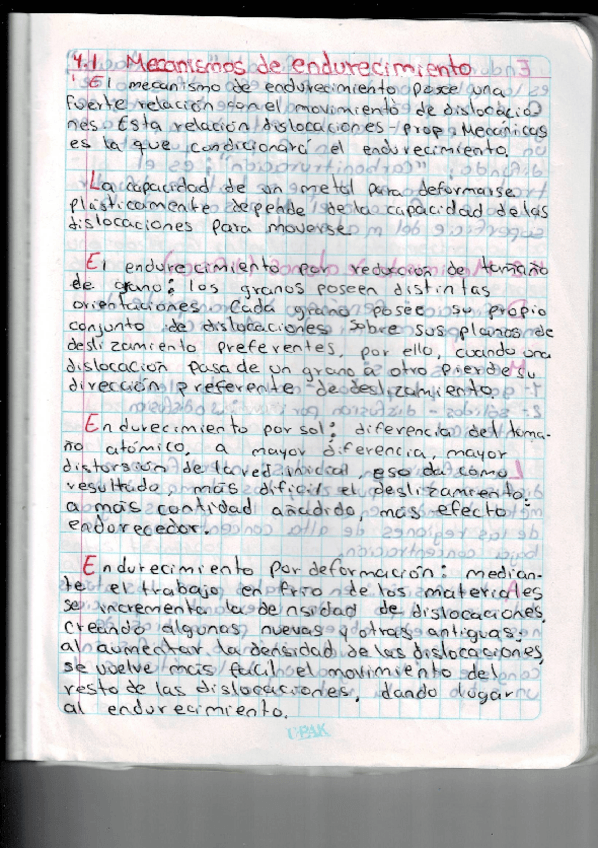 4.1 Mecanismos de endurecimiento
El mecanismo de endurecimiento posee una
fuerte relación con el movimiento de dislocacio
nes. Esta relación dislocaciones - prop. Mecánicas
es la que condicionará el endurecimiento.
La capacidad de un metal para deformarse
plásticamente depende de la capacidad de las
dislocaciones para moverse
El endurecimiento por reducción de tamaño
de grano: los granos poseen distintas
orientaciones. Cada grano posee su propio
conjunto de dislocaciones sobre sus planos de
deslizamiento preferentes, por ello, cuando una
dislocación pasa de un grano a otro pierde su
dirección preferente de deslizamiento.
Endurecimiento por sol: diferencia del tama-
ño atómico, a mayor diferencia, mayor
distorsión de la red inicial, eso da como
resultado, más dificil el deslizamiento:
a más cantidad añadido, más efecto
endurecedor.
Endurecimiento por deformación: median-
te el trabajo en frio de los materiales
se incrementa la densidad de dislocaciones,
creando algunas nuevas y otras antiguas:
al aumentar la densidad de las dislocaciones,
se vuelve más facil el movimiento del
resto de las dislocaciones, dando lugar
al endurecimiento.